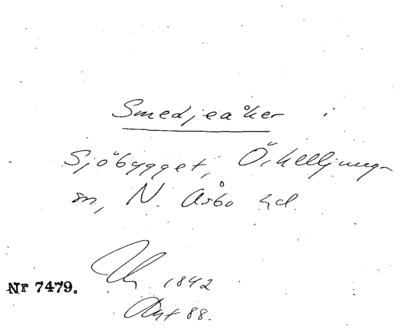 Smedjeåker i
Sjöbygget, Örkelljunga
sn, N. Åsbo hd.
1842
Nr 7479.
Akt 88.